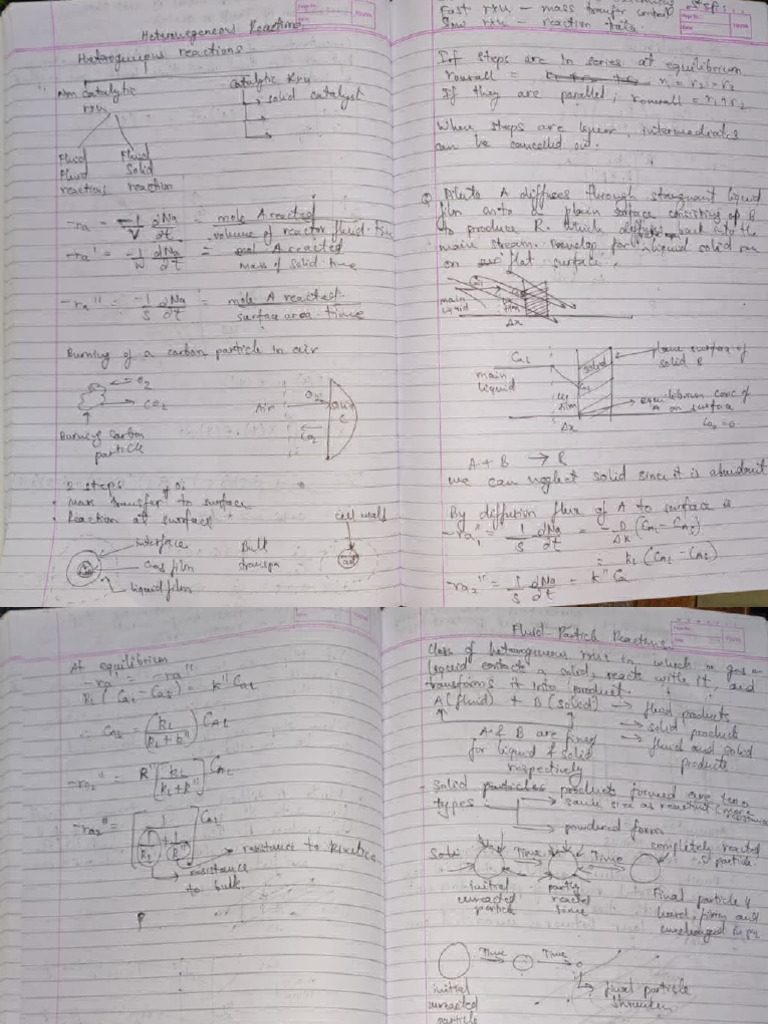 Heterogeneous Reactions
Heterogenous reactions
Non Catalytic
rxn
Catalytic Rxn
solid catalyst
Fluid
Fluid
reactions
Fluid
Solid
reaction
-ra = -1/V dNa/dt = mole A reacted / volume of reactor fluid · time
-ra' = -1/W dNa/dt = mol A reacted / mass of solid · time
-ra'' = -1/S dNa/dt = mole A reacted / surface area time
Burning of a carbon particle in air
O2
CO2
Burning Carbon
particle
Air
O2
CO2
C
2 steps
• Mass transfer to surface
• Reaction at surface
interface
Gas film
liquid film
Bulk
cell wall
Fast rxn - mass transfer control
Slow rxn - reaction rate
If steps are in series at equilibrium
roverall = r1 = r2 = r3
If they are parallel, roverall = r1 + r2
When steps are linear, intermediates
can be cancelled out.
Q Dilute A diffuses through stagnant liquid
film onto a plain surface consisting of B
to produce R which diffuses back into the
main stream. Develop for liquid solid rxn
on flat surface.
main
liquid
film
Δx
CAL
main
liquid
film
Δx
solid
plane surface of
solid B
equilibrium conc of
A on surface
A + B → R
We can neglect solid since it is abundant
By diffution flux of A to surface is
-ra1'' = 1/S dNa/dt = -D/Δx (CAL - CAS)
= kL (CAL - CAS)
-ra2'' = 1/S dNa/dt = k'' Ca
At equilibrium
-ra' = -ra''
kL (CAL - CAS) = k'' CAS
∴ CAS = (kL / kL + k'') CAL
-ra2'' = k'' [kL / kL + k''] CAL
-ra2'' = [1 / 1/kL + 1/k''] CAL
resistance to kinetics
resistance
to bulk
Fluid Particle Reactions
Class of heterogenous rxns in which a gas or
liquid contacts a solid, reacts with it, and
transforms it into product.
A (fluid) + B (solid) → fluid products
→ solid products
→ fluid and solid
products
A & B are fixed
for liquid & solid
respectively
- Solid particles products formed are two
types:
same size as reactant
powdered form
Time
Time
completely reacted
particle
initial
unreacted
particle
partly
reacted
Final particle is
hard, firm and
unchanged in size
Time
Time
initial
unreacted
particle
final particle
shrunken